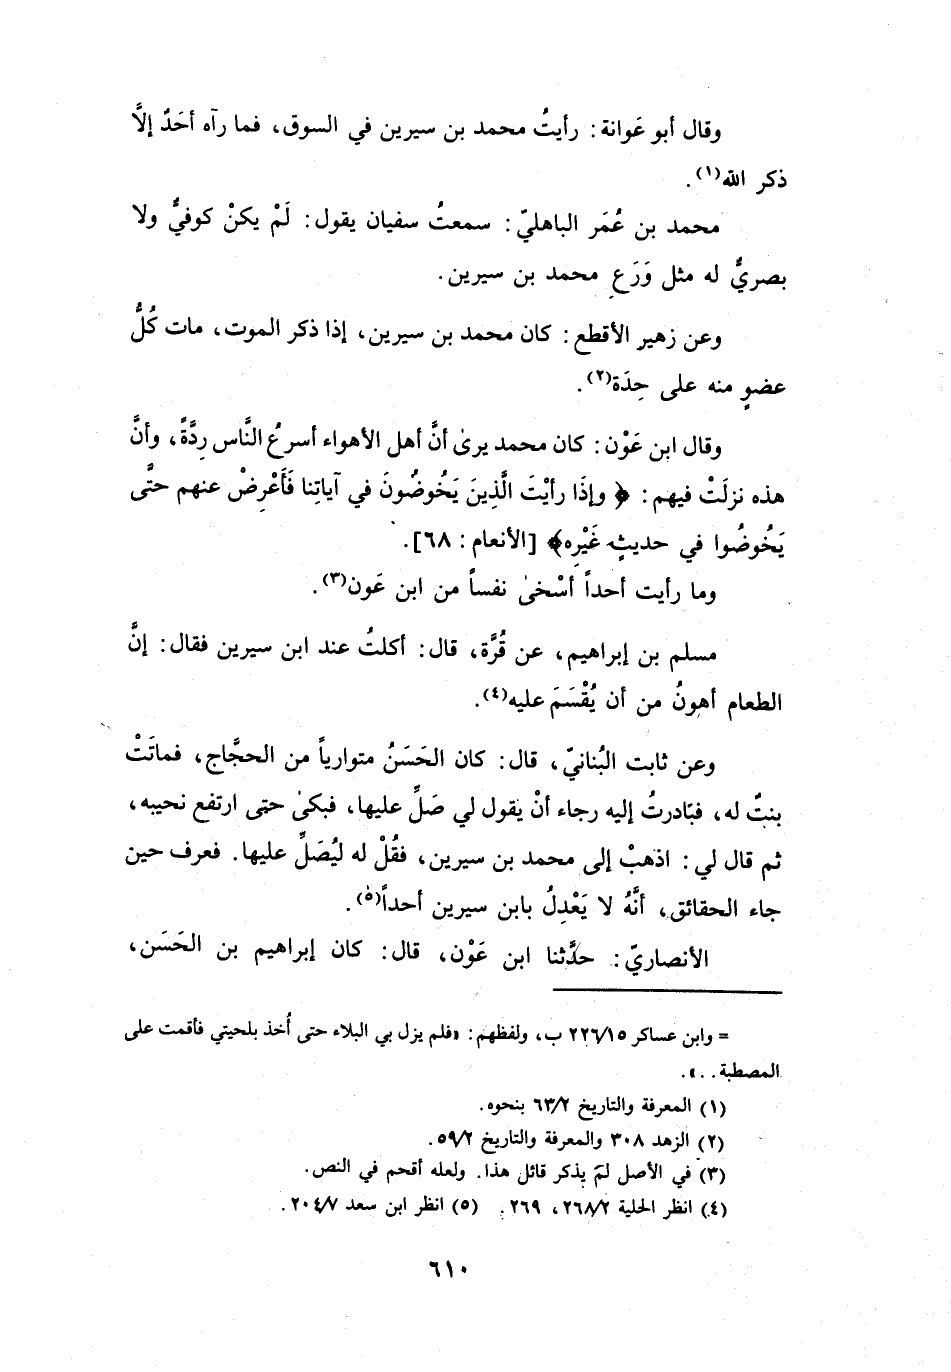 وقال أبو عَوانة: رأيتُ محمد بن سيرين في السوق، فما رآه أحَدٌ إلَّا
ذكر الله(١).
محمد بن عُمَر الباهليّ: سمعتُ سفيان يقول: لَمْ يكنْ كوفيٌّ ولا
بصريٌّ له مثل وَرَعِ محمد بن سيرين.
وعن زهير الأقطع: كان محمد بن سيرين، إذا ذكر الموت، مات كُلُّ
عضوٍ منه على حِدَة(٢).
وقال ابن عَوْن: كان محمد يرىٰ أنَّ أهل الأهواء أسرعُ النَّاس رِدَّةً، وأنَّ
هذه نزلَتْ فيهم: ﴿وإذَا رأيْتَ الَّذِينَ يَخُوضُونَ في آياتِنا فَأَعْرِضْ عنهم حتَّى
يَخُوضُوا في حديثٍ غَيْرِه﴾ [الأنعام: ٦٨].
وما رأيت أحداً أسْخىٰ نفساً من ابن عَون(٣).
مسلم بن إبراهيم، عن قُرَّة، قال: أكلتُ عند ابن سيرين فقال: إنَّ
الطعام أهونُ من أن يُقْسَمَ عليه(٤).
وعن ثابت البُنانيّ، قال: كان الحَسَنُ متوارياً من الحجَّاج، فماتَتْ
بنتٌ له، فبَادرتُ إليه رجاء أنْ يقول لي صَلِّ عليها، فبكىٰ حتى ارتفع نحيبه،
ثم قال لي: اذهبْ إلى محمد بن سيرين، فقُلْ له ليُصَلِّ عليها. فعرف حين
جاء الحقائق، أنَّهُ لا يَعْدِلُ بابن سيرين أحداً(٥).
الأنصاريّ: حدَّثنا ابن عَوْن، قال: كان إبراهيم بن الحَسَن،
= وابن عساكر ٢٢٦/١٥ ب، ولفظهم: «فلم يزل بي البلاء حتى أُخذ بلحيتي فأقمت على
المصطبة..».
(١) المعرفة والتاريخ ٦٣/٢ بنحوه.
(٢) الزهد ٣٠٨ والمعرفة والتاريخ ٥٩/٢.
(٣) في الأصل لمَ يذكر قائل هذا. ولعله أقحم في النص.
(٤) انظر الحلية ٢٦٨/٢، ٢٦٩. (٥) انظر ابن سعد ٢٠٤/٧.
٦١٠